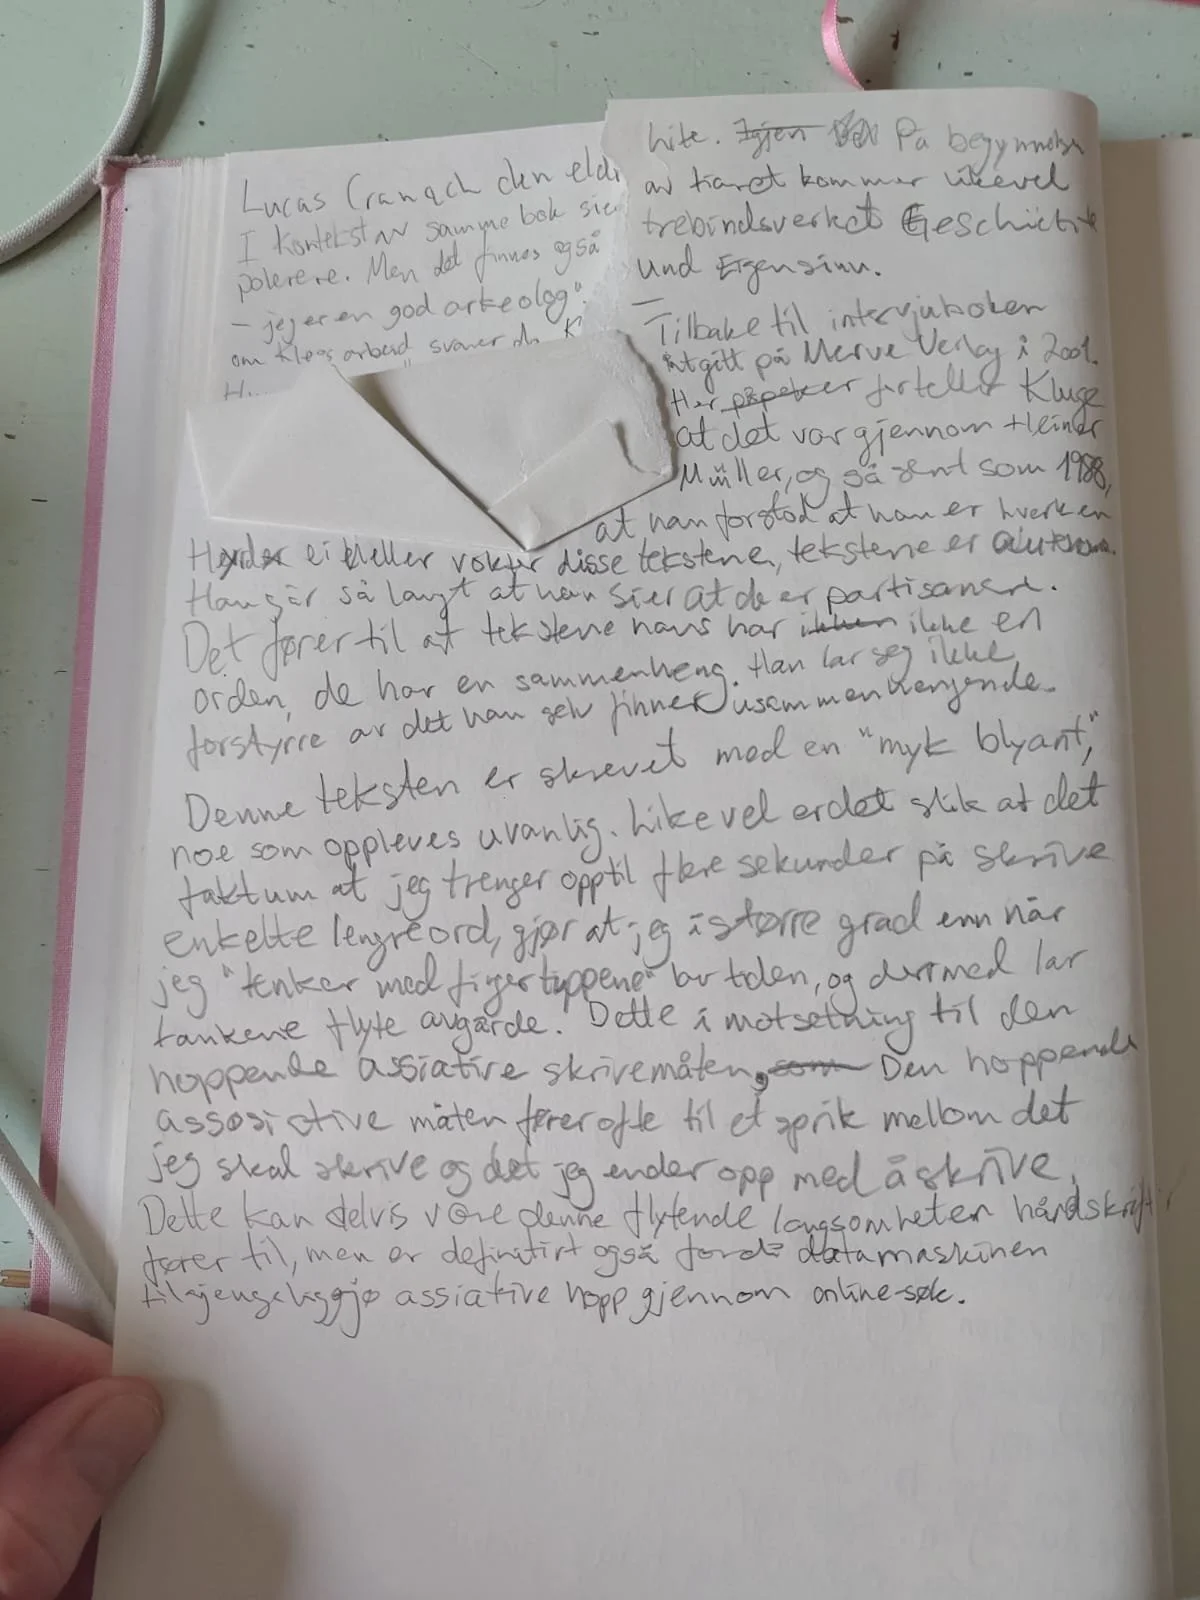 Lucas Cranach den eld
I kontekst av samme bok sier
polerere. Men det finnes også
– jeg er en god arkeolog".
om Kluges arbeid" svarer da K
H
lite. Igjen På begynnelsen
av tiåret kommer likevel
trebindsverket Geschichte
und Eigensinn.
—
Tilbake til intervjuboken
utgitt på Merve Verlag i 2001.
Her påpeker forteller Kluge
at det var gjennom Heiner
Müller, og så sent som 1988,
at han forstod at han er hverken
eller vokter disse tekstene, tekstene er autonome.
Han går så langt at han sier at de er partisanere.
Det fører til at tekstene hans har ikken ikke en
orden, de har en sammenheng. Han lar seg ikke
forstyrre av det han selv finner usammenhengende.
Denne teksten er skrevet med en "myk blyant",
noe som oppleves uvanlig. Likevel er det slik at det
faktum at jeg trenger opptil flere sekunder på skrive
enkelte lengre ord, gjør at jeg i større grad enn når
jeg "tenker med fingertuppene" tiden, og dermed lar
tankene flyte avgårde. Dette i motsetning til den
hoppende assiative skrivemåten, som Den hoppende
assosiative måten fører ofte til et sprik mellom det
jeg skal skrive og det jeg ender opp med å skrive.
Dette kan delvis være denne flytende langsomheten håndskrift
fører til, men er definitivt også fordi datamaskinen
tilgjengeliggjø assiative hopp gjennom online-søk.